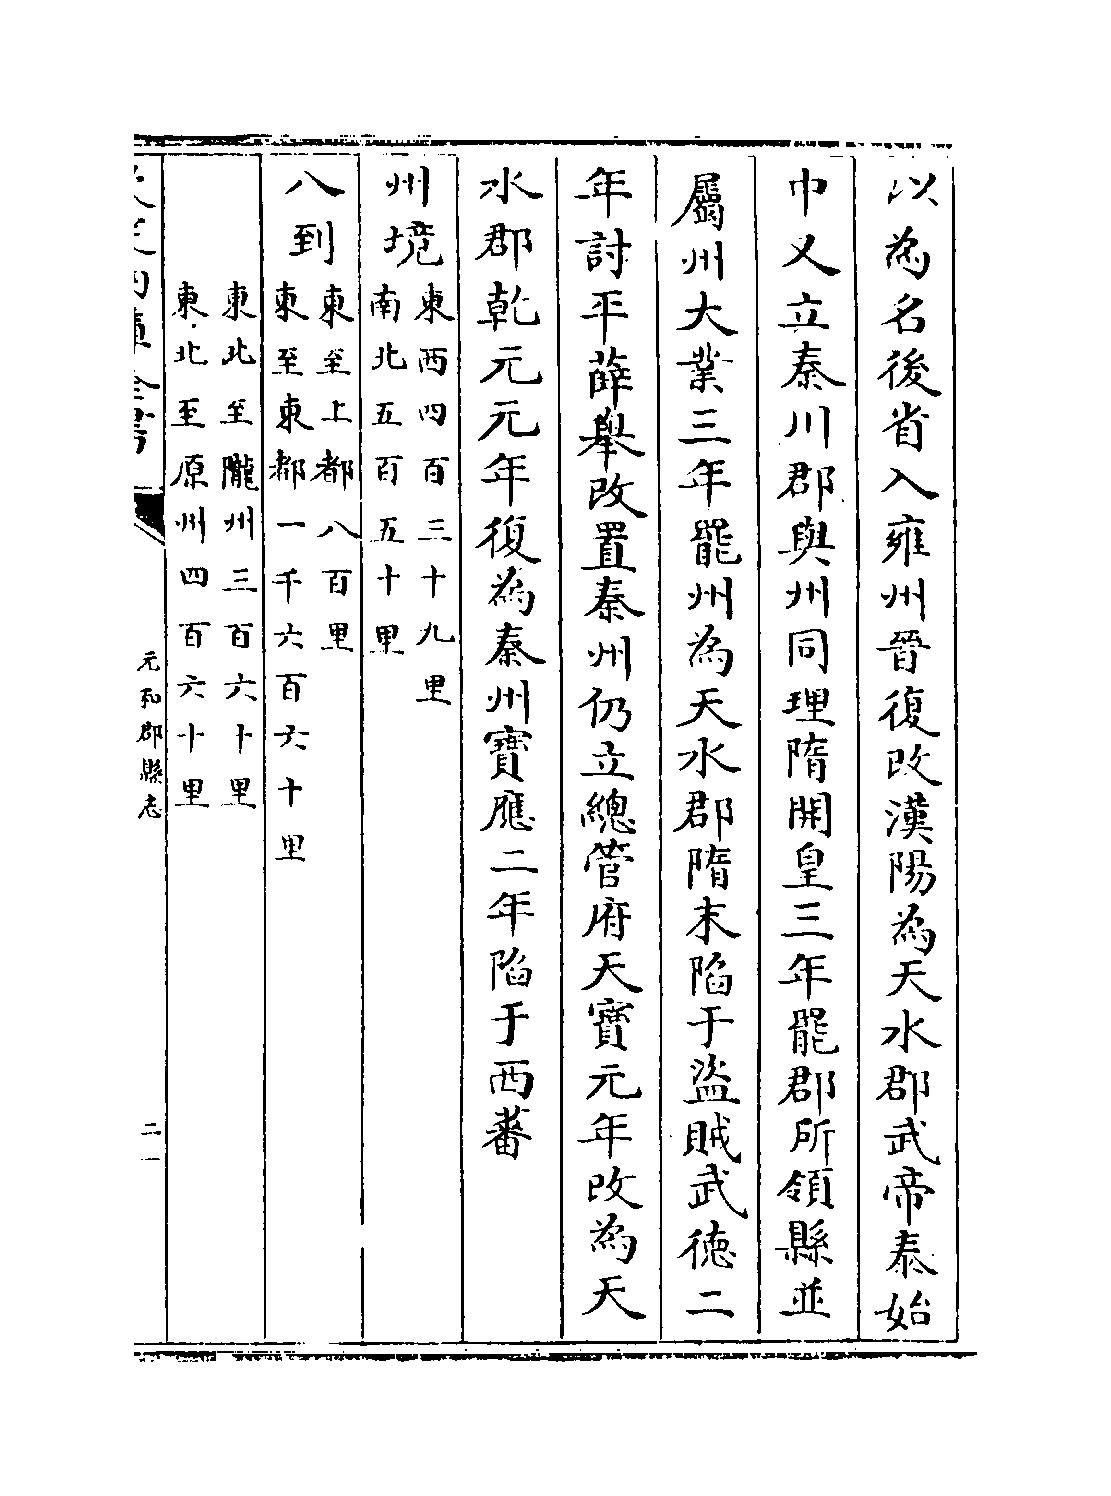 以為名後省入雍州晉復改漢陽為天水郡武帝泰始
中又立秦川郡與州同理隋開皇三年罷郡所領縣並
屬州大業三年罷州為天水郡隋末陷于盜賊武德二
年討平薛舉改置秦州仍立總管府天寶元年改為天
水郡乾元元年復為秦州寶應二年陷于西蕃
州境
東西四百三十九里
南北五百五十里
八到
東至上都八百里
東至東都一千六百六十里
東北至隴州三百六十里
東北至原州四百六十里
全書
元和郡縣志